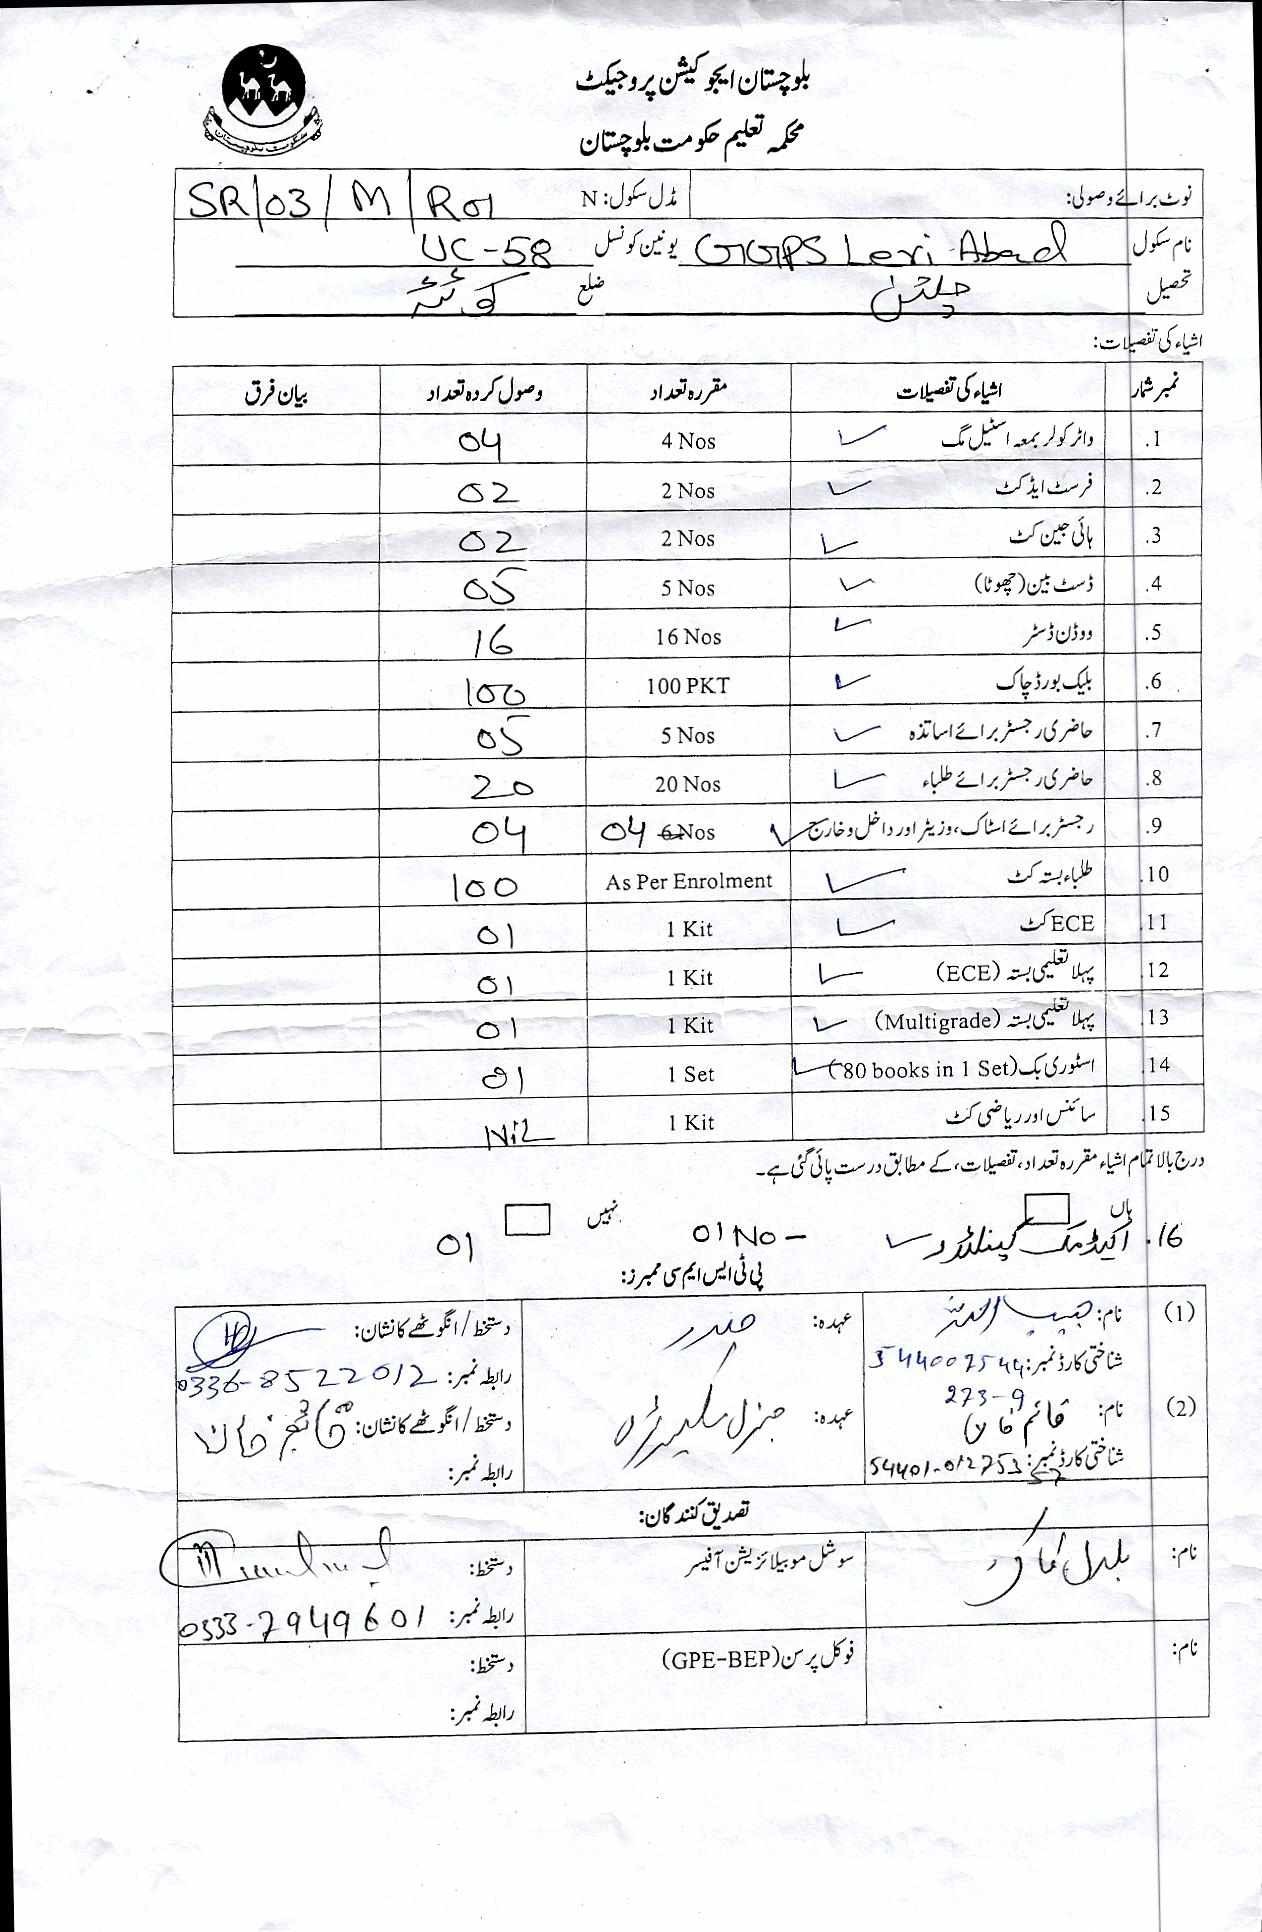 بلوچستان ایجوکیشن پروجیکٹ
محکمہ تعلیم حکومت بلوچستان
حکومت بلوچستان
نوٹ برائے وصولی: مڈل سکول: N SR/03/M/R01
نام سکول GGPS Levi Abad یونین کونسل UC-58
تحصیل چلتن ضلع کوئٹہ
اشیاء کی تفصیلات:
نمبر شمار اشیاء کی تفصیلات مقررہ تعداد وصول کردہ تعداد بیان فرق
1. واٹر کولر بمعہ اسٹیل مگ 4 Nos 04
2. فرسٹ ایڈ کٹ 2 Nos 02
3. ہائی جین کٹ 2 Nos 02
4. ڈسٹ بین (چھوٹا) 5 Nos 05
5. ووڈن ڈسٹر 16 Nos 16
6. بلیک بورڈ چاک 100 PKT 100
7. حاضری رجسٹر برائے اساتذہ 5 Nos 05
8. حاضری رجسٹر برائے طلباء 20 Nos 20
9. رجسٹر برائے اسٹاک، وزیٹر اور داخل و خارج 04 6 Nos 04
10. طلباء بستہ کٹ As Per Enrolment 100
11. ECE کٹ 1 Kit 01
12. پہلا تعلیمی بستہ (ECE) 1 Kit 01
13. پہلا تعلیمی بستہ (Multigrade) 1 Kit 01
14. اسٹوری بک (80 books in 1 Set) 1 Set 01
15. سائنس اور ریاضی کٹ 1 Kit Nil
درج بالا تمام اشیاء مقررہ تعداد، تفصیلات، کے مطابق درست پائی گئی ہے۔
ہاں نہیں
16. اکیڈمک کیلنڈر 01 No - 01
پی ٹی ایس ایم سی ممبرز:
(1) نام: حبیب اللہ عہدہ: صدر دستخط / انگوٹھے کا نشان:
شناختی کارڈ نمبر: 544007544 رابطہ نمبر: 0336-8522012
273-9
(2) نام: قائم خان عہدہ: جنرل سیکریٹری دستخط / انگوٹھے کا نشان: قائم خان
شناختی کارڈ نمبر: 54401-012753 رابطہ نمبر:
تصدیق کنندگان:
نام: سوشل موبیلائزیشن آفیسر دستخط:
رابطہ نمبر: 0333-7949601
نام: فوکل پرسن (GPE-BEP) دستخط:
رابطہ نمبر: